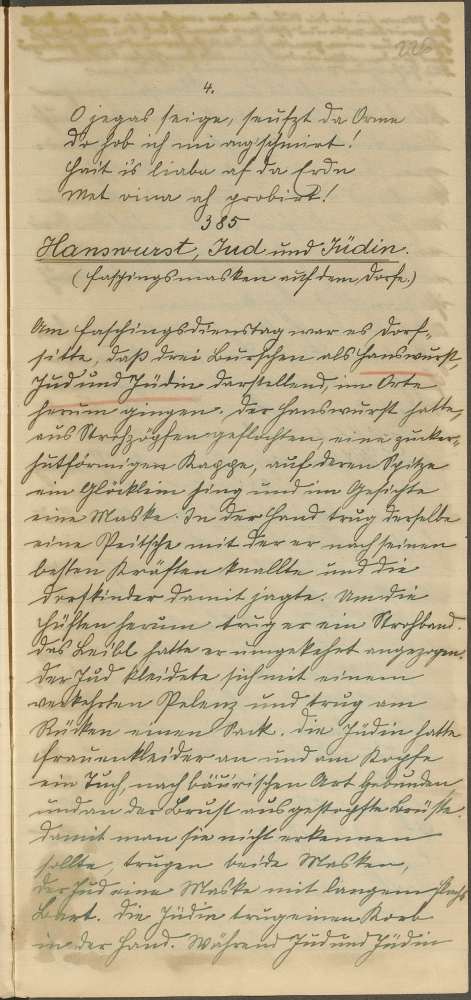 226
4.
O jegas seige, seufzt da Orme
Do hob ich mi ogschmirt!
Hait is liaba af da Erdn
Met oina ah probirt!
385
Hanswurst, Jud und Jüdin.
(Faschingsmasken auf dem Dorfe.)
Am Faschingsdienstag war es Dorf-
sitte, daß drei Burschen als Hanswurst,
Jud und Jüdin darstellend, im Orte
herum gingen. Der Hanswurst hatte,
aus Strohzöpfen geflochten, eine zucker-
hutförmigen Kappe, auf deren Spitze
ein Glöcklein hing und im Gesichte
eine Maske. In der Hand trug derselbe
eine Peitsche mit der er nach seinen
besten Kräften knallte und die
Dorfkinder damit jagte. Um die
Hüften herum trug er ein Strohband.
Das Leibl hatte er umgekehrt angezogen.
Der Jud kleidete sich mit einem
verkehrten Pelenz und trug am
Rücken einen Sack. Die Jüdin hatte
Frauenkleider an und am Kopfe
ein Tuch, nach bäurischen Art gebunden
und an der Brust ausgestopfte Brüste.
Damit man sie nicht erkennen
sollte, trugen beide Masken,
der Jud eine Maske mit langem Flachs
Bart. Die Jüdin trug einen Korb
in der Hand. Während Jud und Jüdin